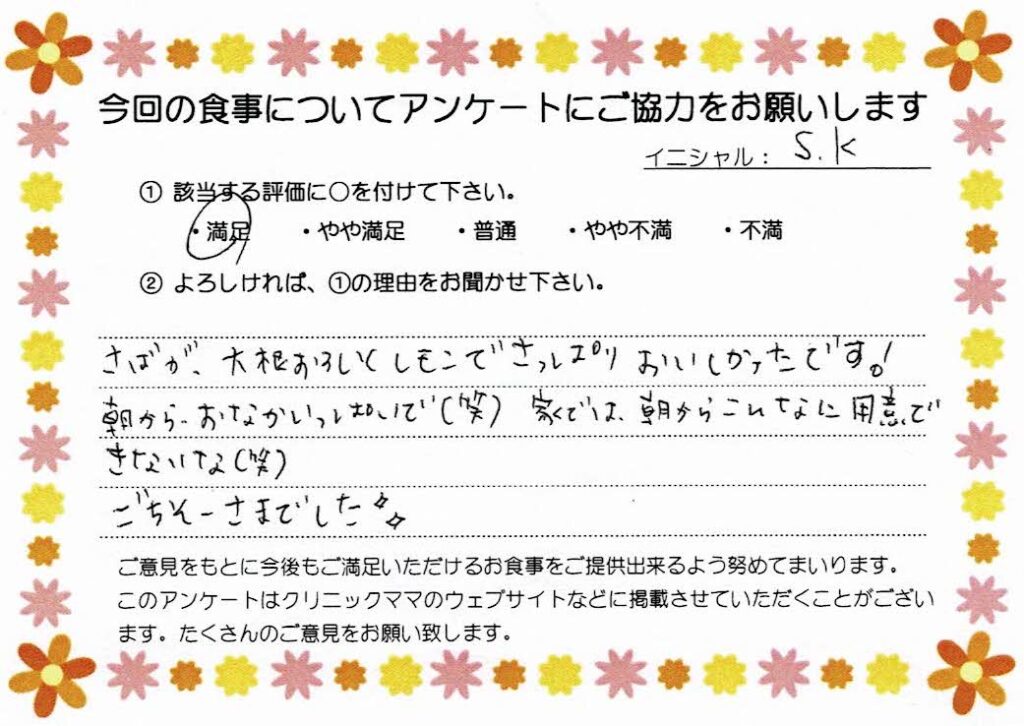 今回の食事についてアンケートにご協力をお願いします
イニシャル： S.K
① 該当する評価に○を付けて下さい。
・満足 ・やや満足 ・普通 ・やや不満 ・不満
② よろしければ、①の理由をお聞かせ下さい。
さばが、大根おろしとしそでさっぱり おいしかったです！
朝から、おなかいっぱいで（笑） 家では、朝からこんなに用意で
きないな（笑）
ごちそーさまでした
ご意見をもとに今後もご満足いただけるお食事をご提供出来るよう努めてまいります。
このアンケートはクリニックママのウェブサイトなどに掲載させていただくことがござい
ます。たくさんのご意見をお願い致します。